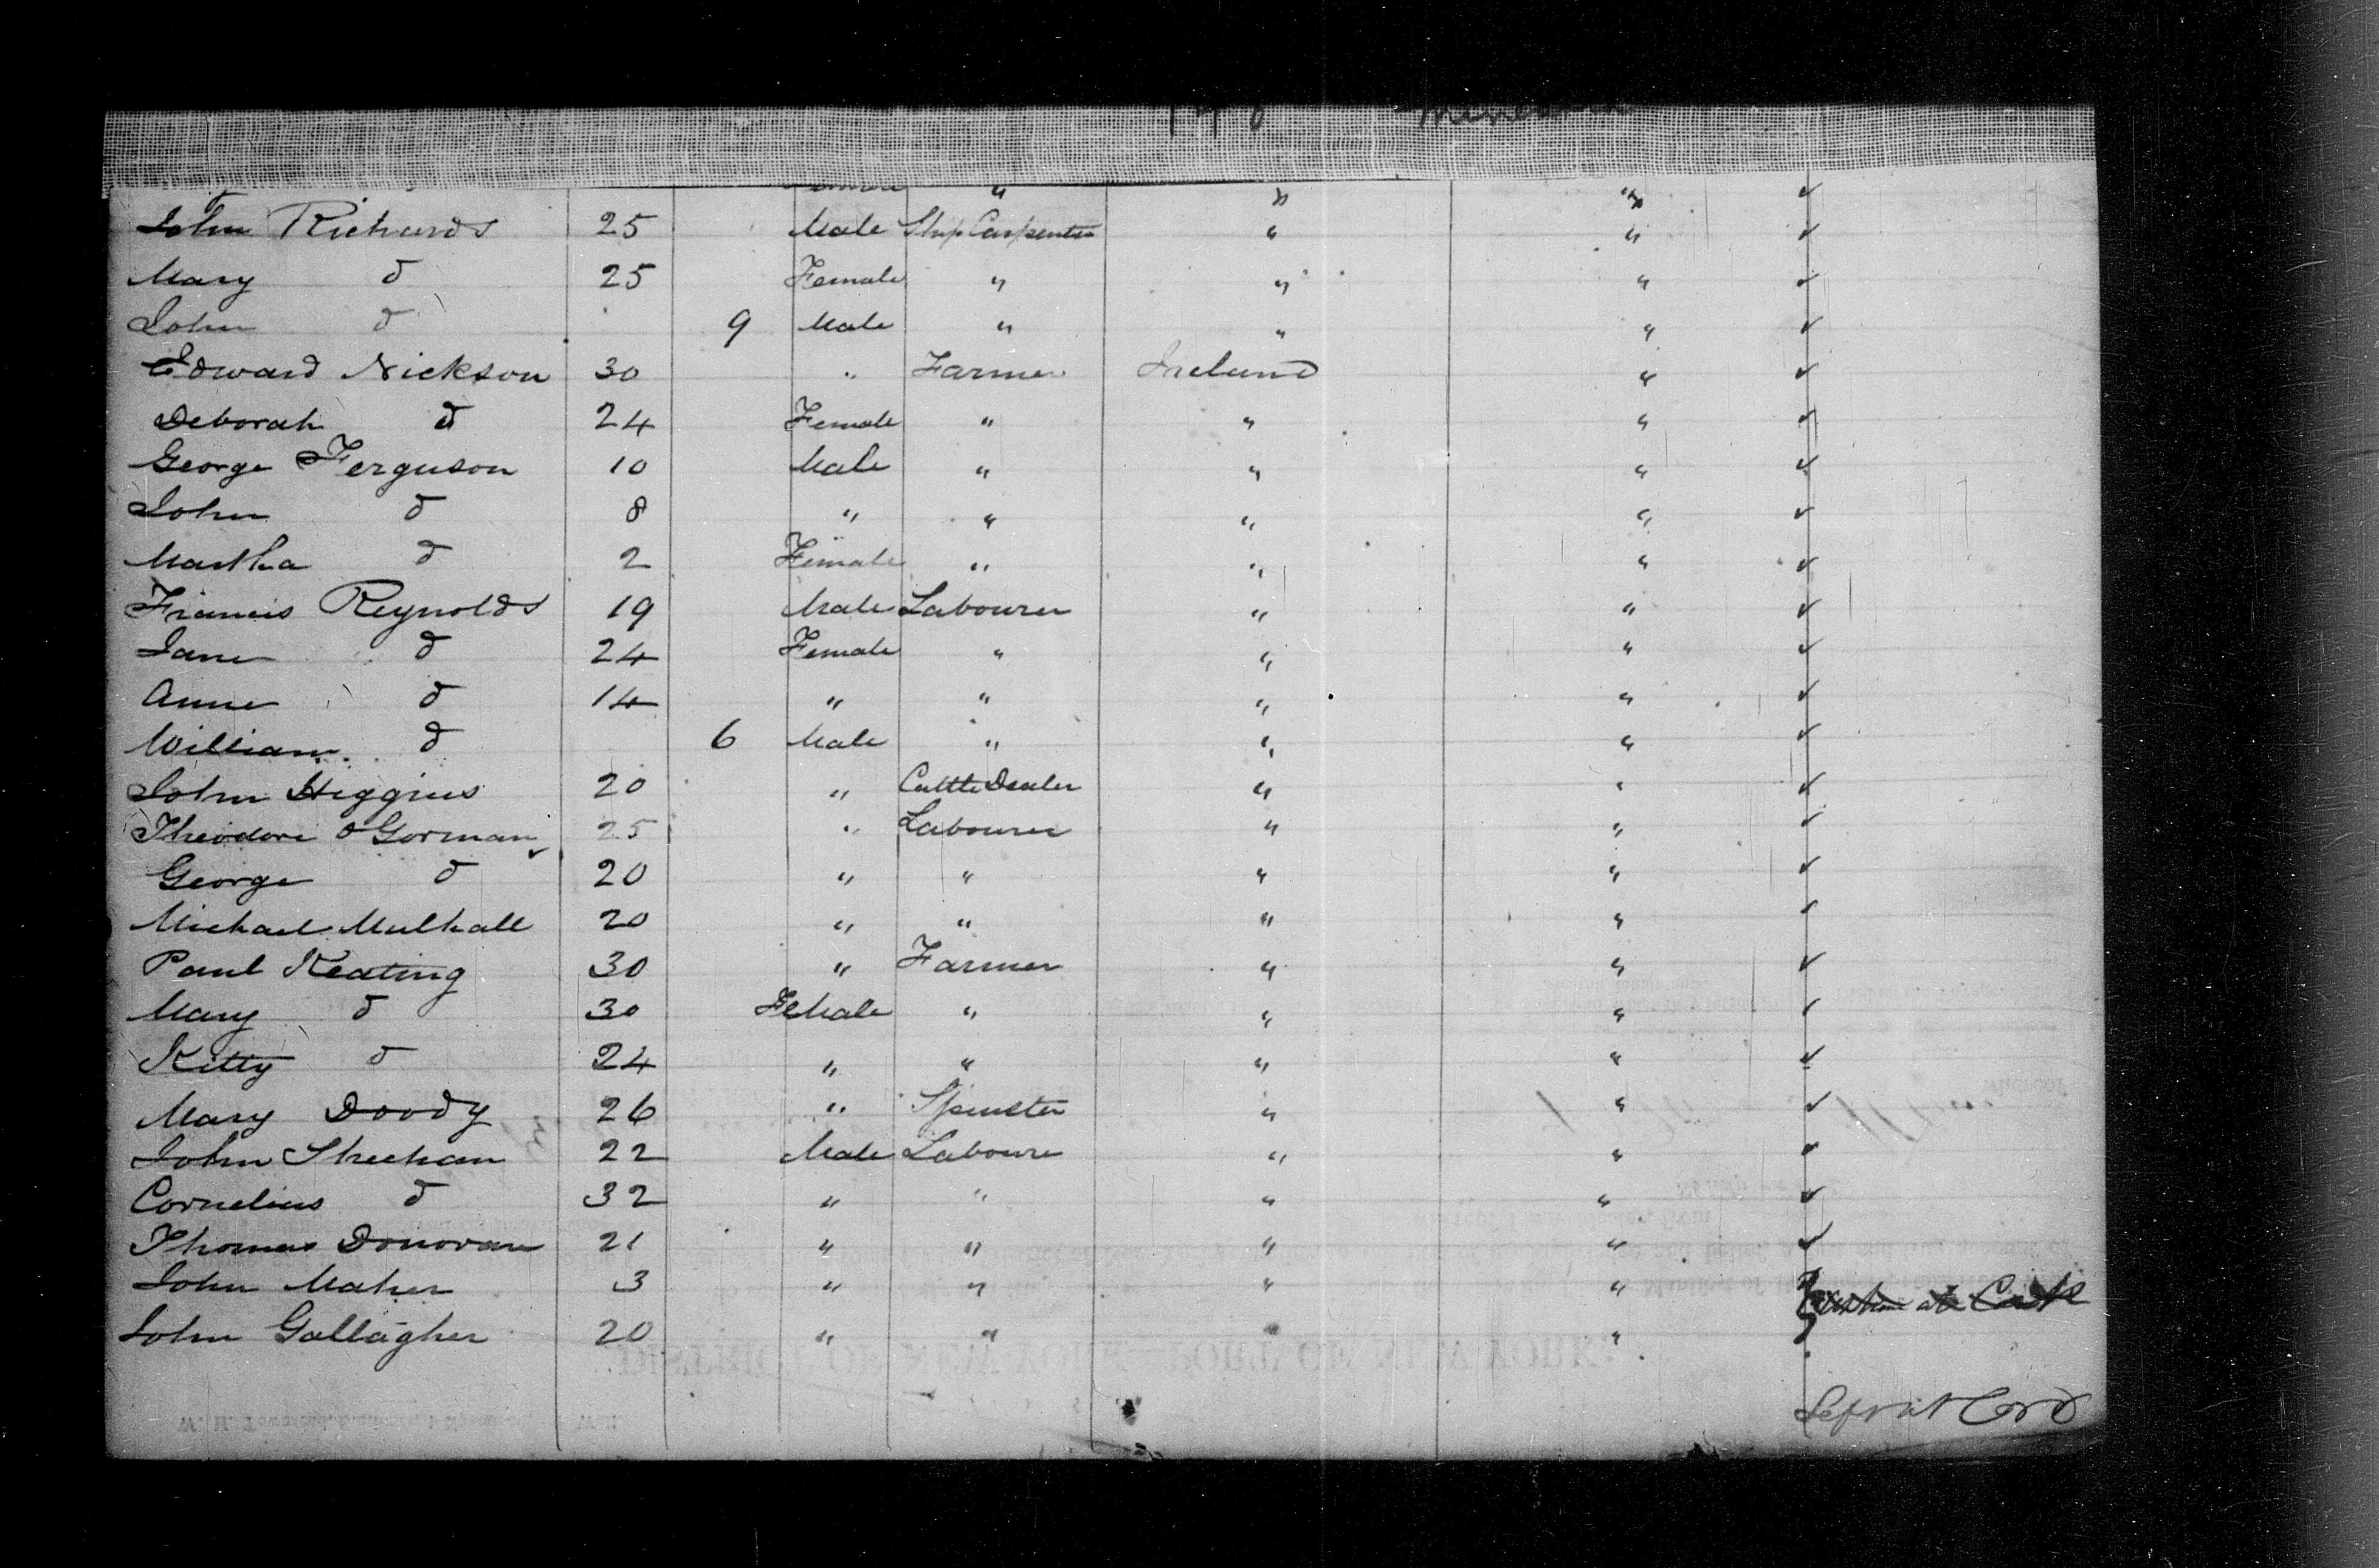 " " " ✓
John Richards 25 Male Ship Carpenter " " ✓
Mary d 25 Female " " " ✓
John d 9 Male " " " ✓
Edward Nickson 30 " Farmer Ireland " ✓
Deborah d 24 Female " " " ✓
George Ferguson 10 Male " " " ✓
John d 8 " " " " ✓
Martha d 2 Female " " " ✓
Francis Reynolds 19 Male Labourer " " ✓
Jane d 24 Female " " " ✓
Anne d 14 " " " " ✓
William d 6 Male " " " ✓
John Higgins 20 " Cattle Dealer " " ✓
Theodore O'Gorman 25 " Labourer " " ✓
George d 20 " " " " ✓
Michael Mulhall 20 " " " " ✓
Paul Keating 30 " Farmer " " ✓
Mary d 30 Female " " " ✓
Kitty d 24 " " " " ✓
Mary Doody 26 " Spinster " " ✓
John Sheehan 22 Male Laboure " " ✓
Cornelius d 32 " " " " ✓
Thomas Donovan 21 " " " " ✓
John Maher 3 " " " " at Cork
John Gallagher 20 " " " "